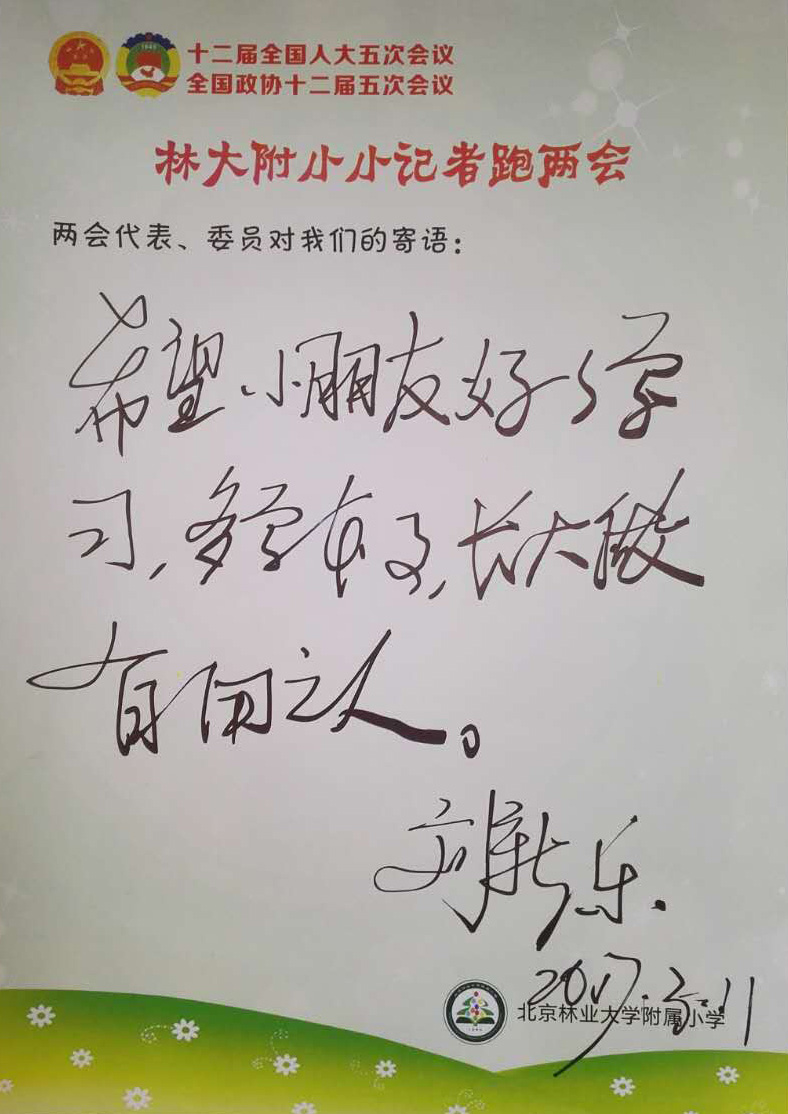 十二届全国人大五次会议
全国政协十二届五次会议
林大附小小记者跑两会
两会代表、委员对我们的寄语：
希望小朋友好好学
习，多学本事，长大做
有用之人。
刘新乐
2017.3.11
北京林业大学附属小学